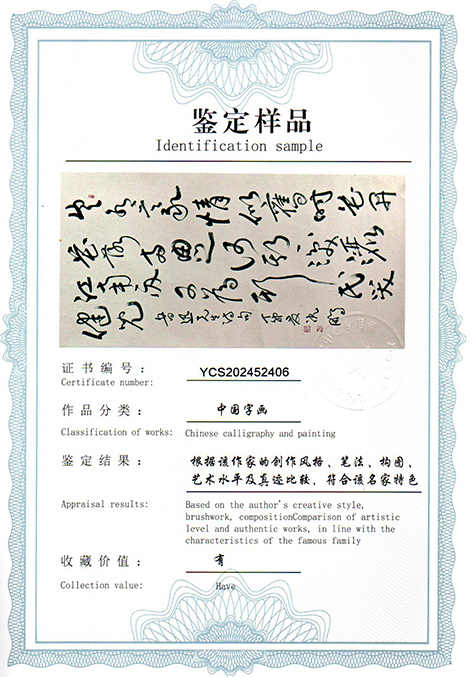 鉴定样品
Identification sample
情似旧时
证书编号：
YCS202452406
Certificate number:
作品分类：
中国字画
Classification of works:
Chinese calligraphy and painting
鉴定结果：
根据该作家的创作风格、笔法、构图、
艺术水平及真迹比较，符合该名家特色
Appraisal results:
Based on the author's creative style,
brushwork, compositionComparison of artistic
level and authentic works, in line with the
characteristics of the famous family
收藏价值：
有
Collection value:
Have